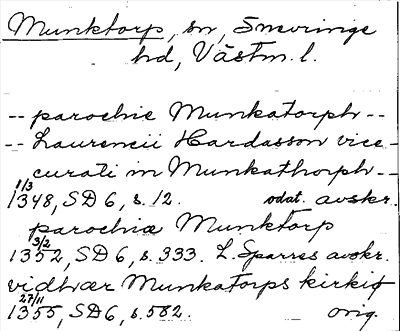 Munktorp, sn, Snevringe
hd, Västm. l.
-- parochie Munkatorph --
-- Laurencii Hardasson vice-
curati in Munkathorph --
1/3
1348, SD 6, s. 12. odat. avskr.
parochiæ Munktorp
3/2
1352, SD 6, s. 333. L. Sparres avskr.
vidhær Munkatorps kirkiø
27/11
1355, SD 6, s. 582. orig.